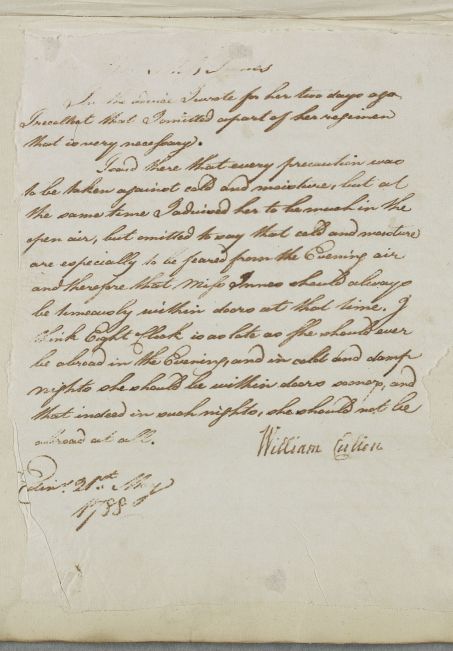 For Miss Innes
In the advice I wrote for her two days ago
I recollect that I omitted a part of her regimen
that is very necessary.
I said there that every precaution was
to be taken against cold and moisture, but at
the same time I advised her to be much in the
open air, but omitted to say that cold and moisture
are especially to be feared from the Evening air
and therefore that Miss Innes should always
be timeously within doors at that time. I
think Eight o'Cloak is as late as She should ever
be abroad in the Evening, and in cold and damp
nights she should be within doors sooner, and
that indeed in such nights, she should not be
abroad at all.
William Cullen
Edinr. 21st May
1788